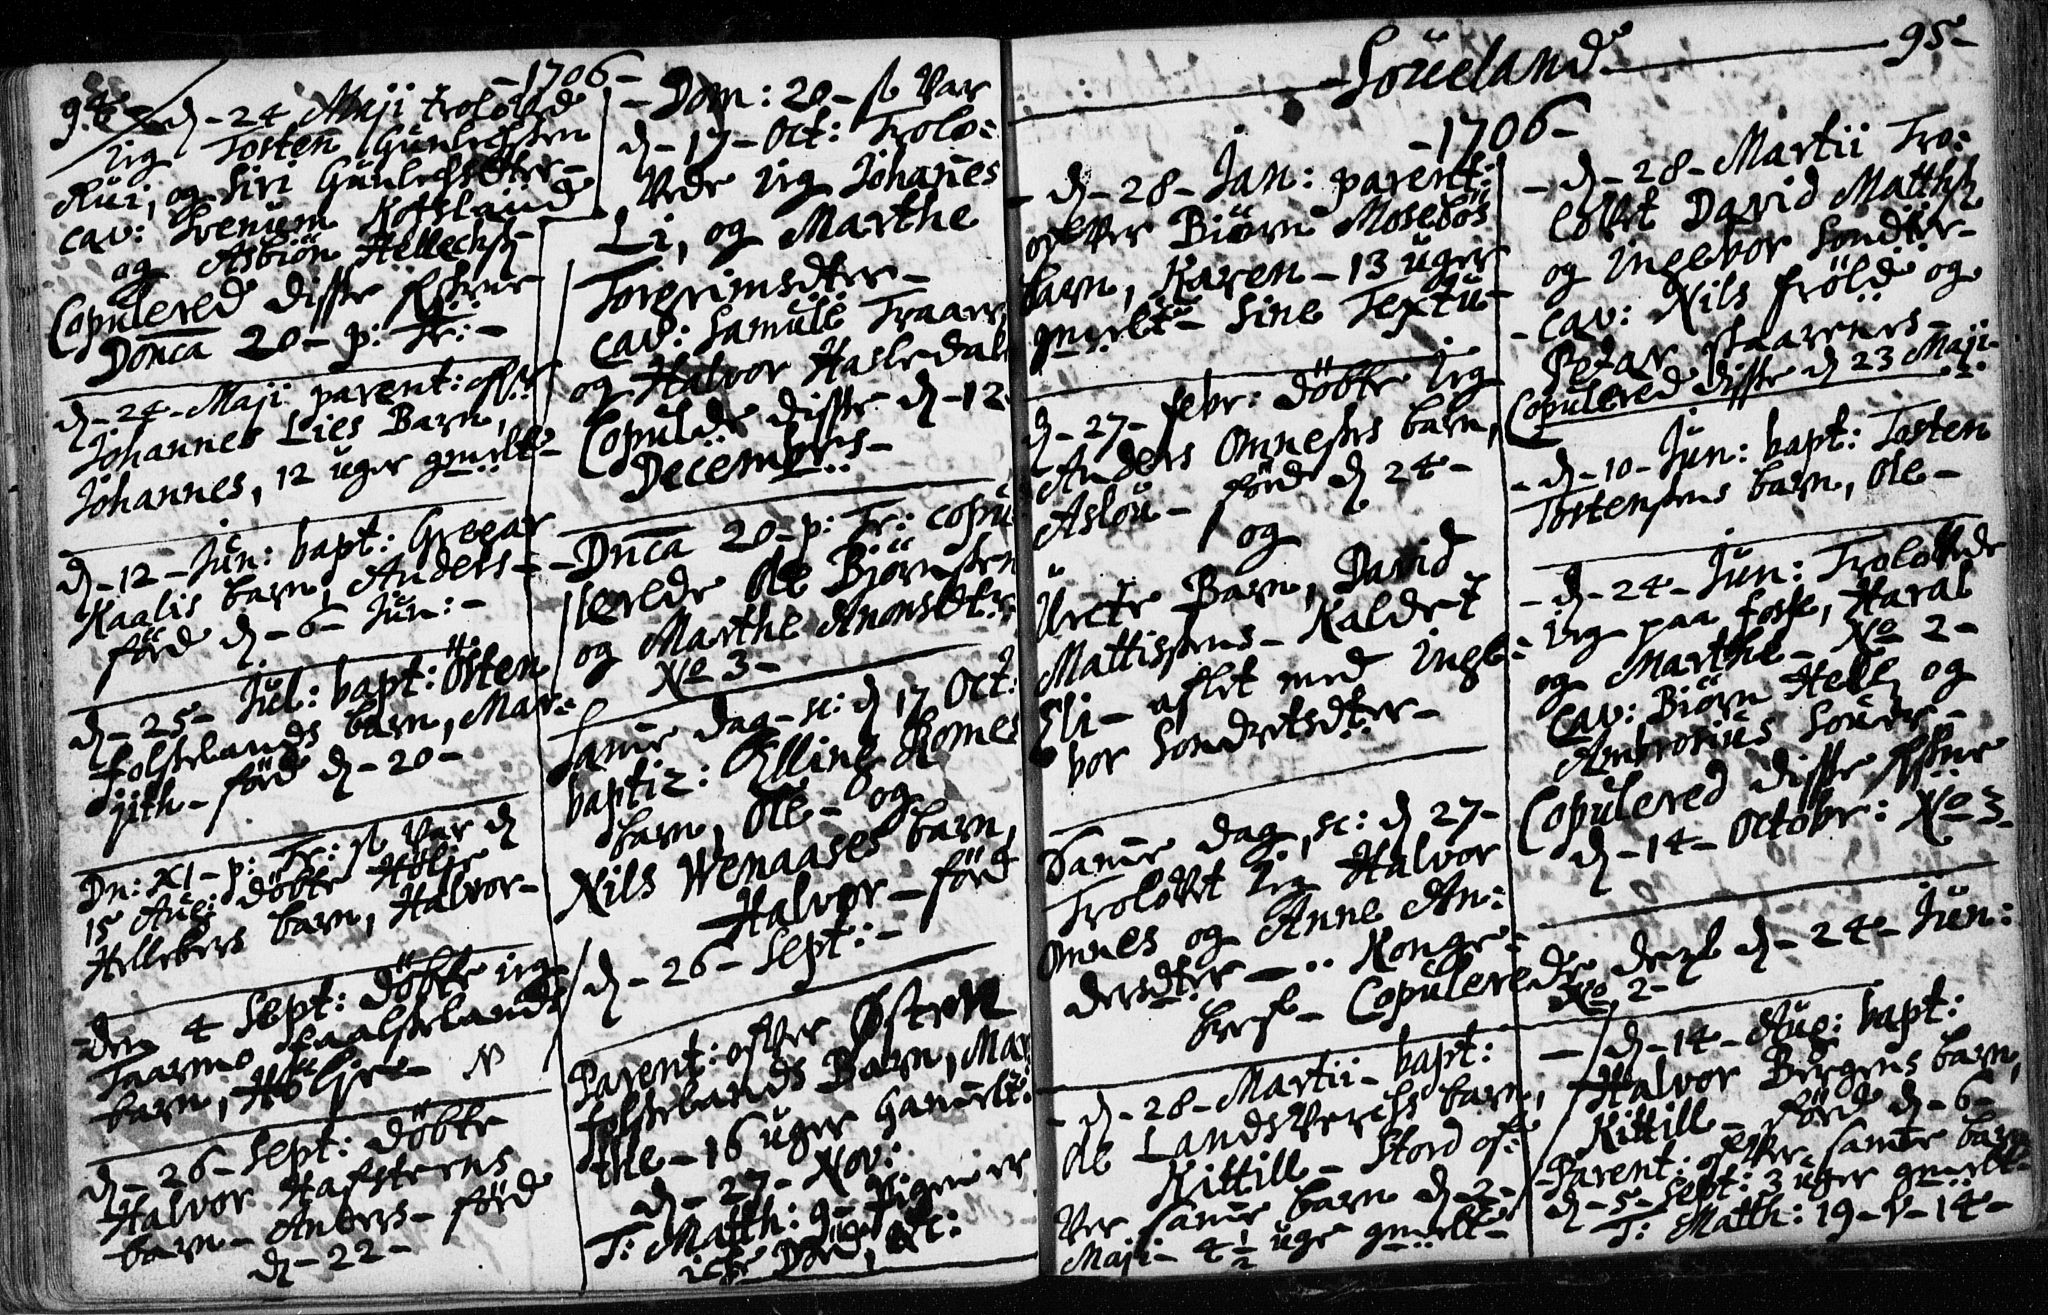 94
-1706-
d-24 Maji trolofvede
ieg Tosten Gunlechssen
Rui, og Siri Gunlechsdtter-
cav: Svenum Rofsland
og Asbiön Hellechs
Copulered disse
Domca 20- p: Tr:-
d-24-Maji parent:
Johannes Lies Barn,
Johannes, 12 uger gmelt-
d-12-Jun: bapt: Gregar
Kaalis barn, Anders-
förd d-6-Jun:-
d-25-Jul: bapt: Östen
folsselands barn, Mar-
jith- förd d-20-
Dn: XI-p: Tr: var d
15 Aug: döbte Holje
Hellebers barn, Halvor-
den 4 Sept: döbte ieg
Taarmo
barn,
d-26-Sept: döbte
Halvor Hafsteens
barn- Anders- förd
d-22-
-Dom: 20- var
d-17-Oct: Trolo-
vede ieg Johannes
Li, og Marthe
Torgrimsdtter-
cav: Samule Traaer
og Halvor Hasledal
Copulde disse d-12
Decembris-
-Dnca 20-p: Tr: copu
lerede Ole Biörnssen
og Marthe Anonsdt:
No 3-
Same dag-sc: d 17 Oct:
baptiz: Elling Romes
barn, Ole- og
Nils Wenaases barn,
Halvor- förd
d-26-Sept:-
Parent: ofver Østen
folsselands Barn, Mar
the-16 uger gamelt:
d-27-Nov:
T: Matth: 9- Pigen er
icke Död, etc:
Soueland
95-
-1706-
-d-28-Jan: parent:
ofver Biörn Mosebös
barn, Karen-13 uger
gmelt- Sine Textu-
d-27-febr: döbte ieg
Anders Omnes barn,
Aslou- förd d 24-
og
Uecte Barn, David
Mattissens- Kaldet
Eli- aflet med Inge-
bor Sondresdtter-
Same dag, sc: d 27-
Trolovet ieg Halvor
Omnes og Anne An-
dersdtter- Konge-
Copulerede d-24-Jun:
No 2-
-d-28-Martii-bapt:
Ole Landsverchs barn,
Kittill- Stord of-
ver same barn d-2-
Maji-4½ uge gmelt-
-d-28-Martii Tro-
lovet David Matthss
og Ingebor Sondter-
-cav: Nils fröld og
Peder Staarenes-
Copulered disse d 23 Maji-
-d-10-Jun: bapt: Tosten
Tostensens barn, Ole-
-d-24-Jun: Trolovede
ieg paa fosse, Haral
og Marthe- No 2-
Cav: Biörn Helle, og
Ambrosius
Copulered disse
d-14-Octobr: No 3-
-d-14-Aug: bapt:
Halvor Bergens barn,
Kittill- förd d-6-
Parent: ofver same barn
d-5-Sept: 3 uger gmelt-
T: Matth: 19-v-14-